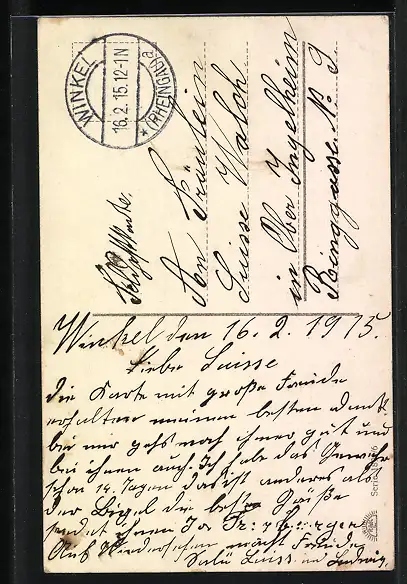 WINKEL
16.2.15.12-1N
* (RHEINGAU) a
Feldpostkarte.
An Fräulein
Luisse Walch
in Ober Ingelheim
Binggasse No. 9
Winkel den 16. 2. 1915.
Liebe Luisse
die Karte mit große Freude
erhalten meinen besten dank
bei mir gehs noch imer gut und
bei ihnen auch. Ich habe das Gewehr
schon 14. Tagen das ist anderes als
der Bigel die beste Größe
sendet ihnen
Auf Wiedersehen macht Freude
Ludwig
Serie